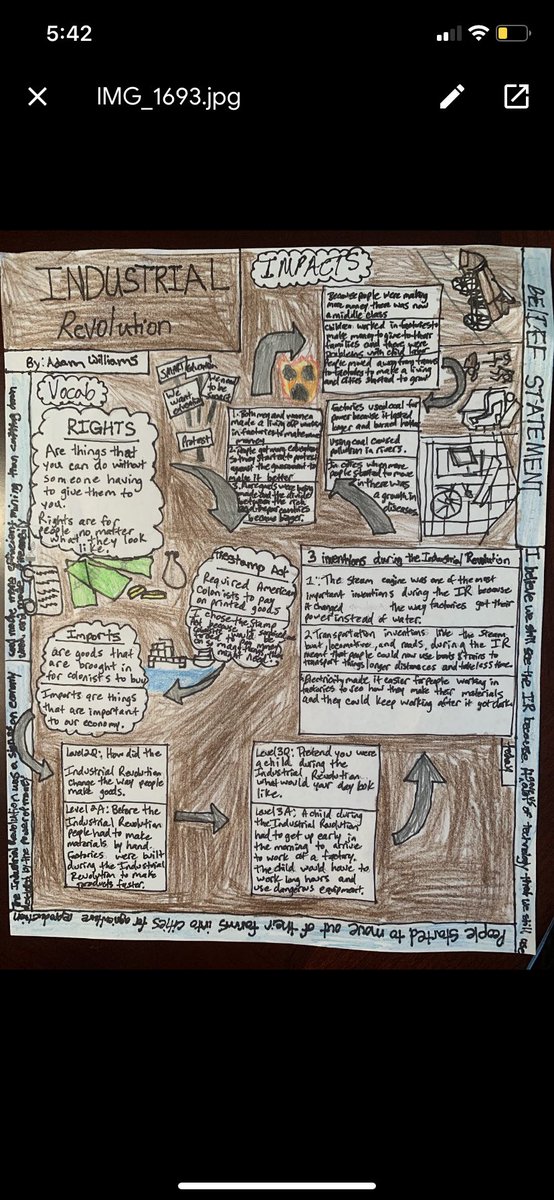 5:42
IMG_1693.jpg
INDUSTRIAL
Revolution
By: Adam Williams
IMPACTS
Because people were making
more money there was now
a middle class
Children worked in factories to
make money to give to their
families and there were
problems with child labor
People moved away from farms
to factories to make a living
and cities started to grow
Vocab
RIGHTS
Are things that
you can do without
someone having
to give them to
you.
Rights are for
people no matter
what they look
like.
SMART
education
We
want
education
We need
to be
Protest
1. Both men and women
made a living off working
in factories to make more
money
2. People got when education
so they started to protest
against the government to
make it better
3. more goods were being
made but the divide
between the rich
and the poor
became bigger.
Factories used coal for
power because it lasted
longer and burned hotter
Using coal caused
pollution in rivers.
In cities when more
people started to move
in there was
a growth in
diseases
The Stamp Act
Required American
Colonists to pay
on printed goods
I chose the Stamp
Act because
Imports
are goods that
are brought in
for colonists to buy
Imports are things
that are important
to our economy.
3 inventions during the Industrial Revolution
1. The Steam engine was one of the most
important inventions during the IR because
it changed the way factories got their
power instead of water.
2. Transportation inventions like the steam
boat, locomotive, and roads, during the IR
meant that people could now use boats & trains to
transport things longer distances and take less time.
Electricity made it easier for people working in
factories to see how they make their materials
and they could keep working after it got dark
Level 2Q: How did the
Industrial Revolution
change the way people
make goods.
Level 2A: Before the
Industrial Revolution
people had to make
materials by hand.
Factories were built
during the Industrial
Revolution to make
products faster.
Level 3Q: Pretend you were
a child during the
Industrial Revolution
what would your day look
like.
Level 3A: A child during
the Industrial Revolution
had to get up early in
the morning to arrive
to work at a factory.
the child would have to
work long hours and
use dangerous equipment.
BELIEF STATEMENT
I believe we still see the IR because of technology that we still use
today
People started to move out of their farms into cities for agriculture reproduction
The Industrial Revolution was a economy
by the power of